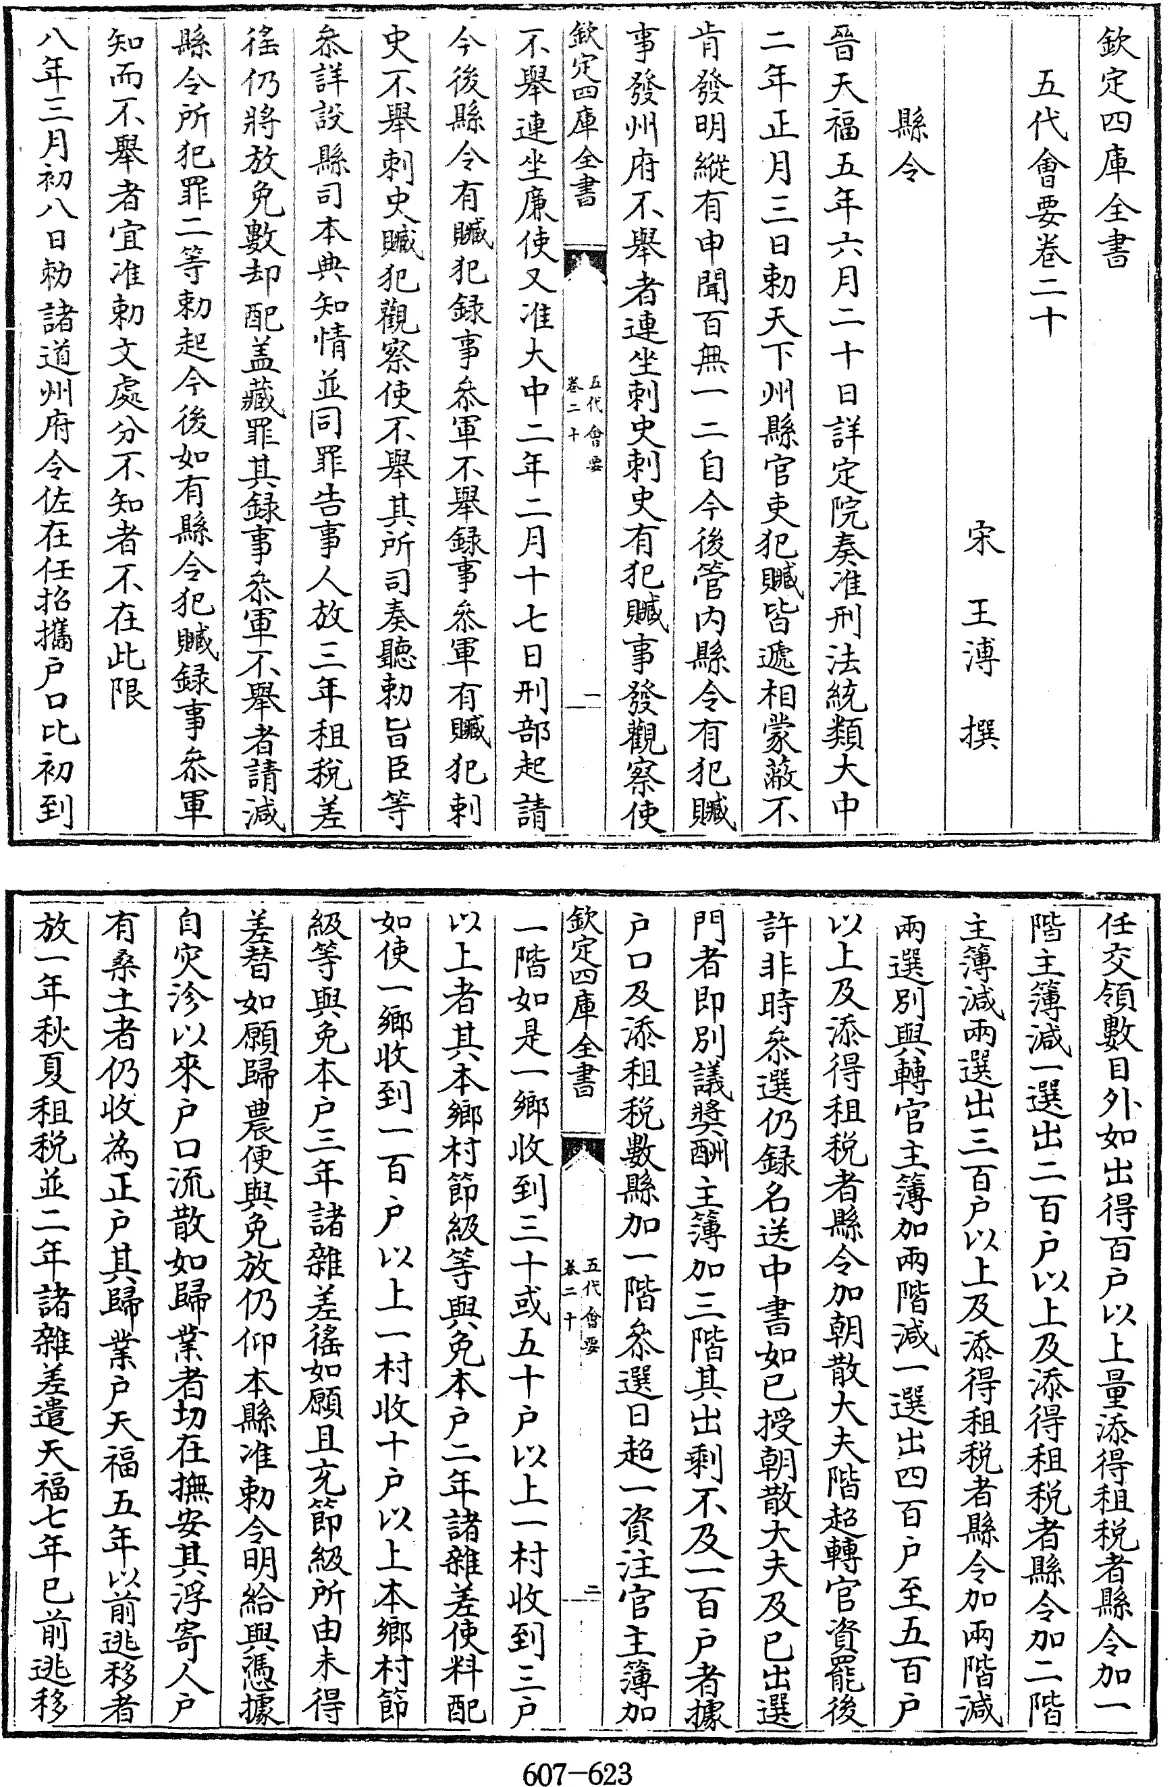 欽定四庫全書
五代會要卷二十
宋王溥撰
縣令
晉天福五年六月二十日詳定院奏准刑法統類大中
二年正月三日勅天下州縣官吏犯贓皆遞相蒙蔽不
肯發明縱有申聞百無一二自今後管内縣令有犯贓
事發州府不舉者連坐刺史刺史有犯贓事發觀察使
欽定四庫全書
五代會要
卷二十
一
不舉連坐廉使又准大中二年二月十七日刑部起請
今後縣令有贓犯録事叅軍不舉録事叅軍有贓犯刺
史不舉刺史贓犯觀察使不舉其所司奏聽勅旨臣等
叅詳設縣司本典知情並同罪告事人放三年租税差
徭仍將放免數却配盖藏罪其録事叅軍不舉者請減
縣令所犯罪二等勅起今後如有縣令犯贓録事叅軍
知而不舉者宜准勅文處分不知者不在此限
八年三月初八日勅諸道州府令佐在任招攜户口比初到
任交領數目外如出得百户以上量添得租税者縣令加一
階主簿減一選出二百户以上及添得租税者縣令加二階
主簿減兩選出三百户以上及添得租税者縣令加兩階減
兩選別與轉官主簿加兩階減一選出四百户至五百户
以上及添得租税者縣令加朝散大夫階超轉官資罷後
許非時叅選仍録名送中書如已授朝散大夫及已出選
門者即別議奬酬主簿加三階其出剩不及一百户者據
户口及添租税數縣加一階叅選日超一資注官主簿加
欽定四庫全書
五代會要
卷二十
二
一階如是一鄉收到三十或五十户以上一村收到三户
以上者其本鄉村節級等與免本户二年諸雜差使料配
如使一鄉收到一百户以上一村收十户以上本鄉村節
級等與免本户三年諸雜差徭如願且充節級所由未得
差替如願歸農便與免放仍仰本縣准勅令明給與憑據
自灾沴以來户口流散如歸業者切在撫安其浮寄人户
有桑土者仍收為正户其歸業户天福五年以前逃移者
放一年秋夏租税並二年諸雜差遣天福七年已前逃移
607-623